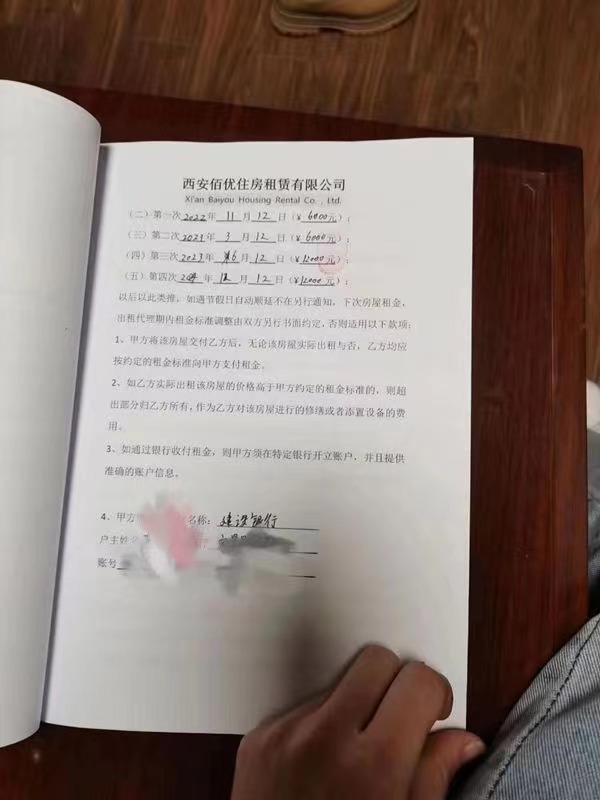 西安佰优住房租赁有限公司
Xi'an Baiyou Housing Rental Co. , Ltd.
（二）第一次2022年 11 月 12 日（¥ 6000元）；
（三）第二次2023年 3 月 12 日（¥ 6000元）；
（四）第三次2023年 6 月 12 日（¥ 12000元）；
（五）第四次 年 12 月 12 日（¥ 12000元）；
以后以此类推，如遇节假日自动顺延不在另行通知，下次房屋租金，
出租代理期内租金标准调整由双方另行书面约定，否则适用以下款项：
1、甲方将该房屋交付乙方后，无论该房屋实际出租与否，乙方均应
按约定的租金标准向甲方支付租金。
2、如乙方实际出租该房屋的价格高于甲方约定的租金标准的，则超
出部分归乙方所有，作为乙方对该房屋进行的修缮或者添置设备的费
用。
3、如通过银行收付租金，则甲方须在特定银行开立账户，并且提供
准确的账户信息。
4、甲方 名称：建设银行
户主姓
账号